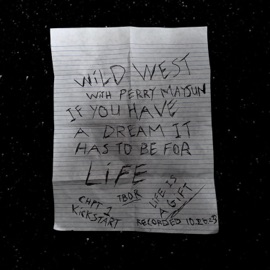 WiLD WEST
WITH PERRY MAYSUN
IF YOU HAVE
A DREAM IT
HAS TO BE FOR
LiFE
CHPT 1
KICKSTART
TBDR
LIFE IS
A GIFT
RECORDED 10.26.